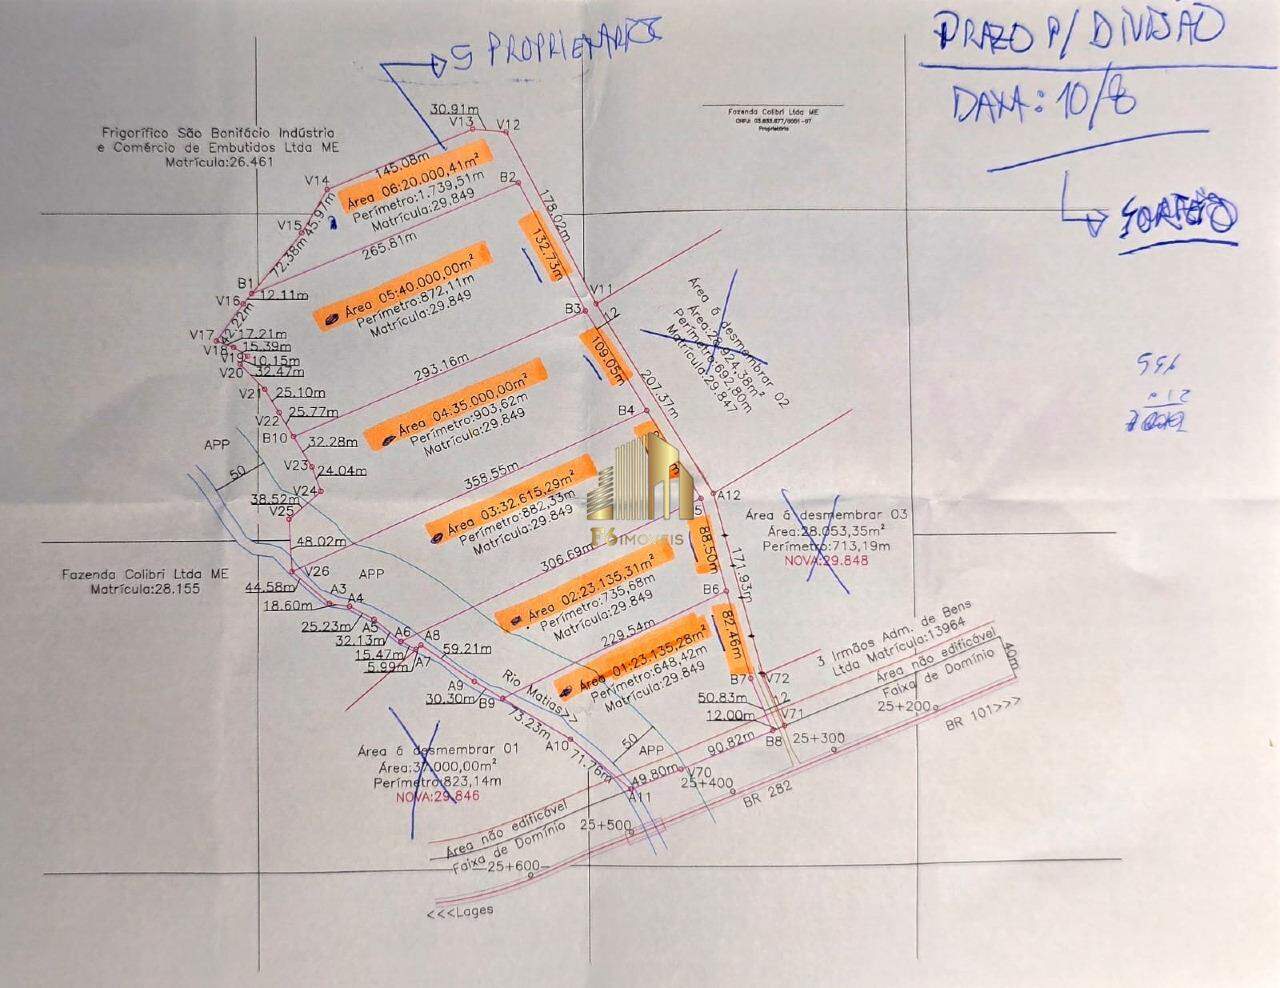 5 PROPRIETÁRIOS
PRAZO P/ DIVISÃO
DATA: 10/8
SORTEIO
Fazenda Colibri Ltda ME
Proprietário
Frigorífico São Bonifácio Indústria
e Comércio de Embutidos Ltda ME
Matrícula:26.461
30.91m
V13
V12
145.08m
V14
Área 06:20.000,41m²
Perímetro:1.739,51m
Matrícula:29.849
B2
178.02m
V15
45.97m
72.38m
265.81m
132.73m
B1
12.11m
V16
42.22m
Área 05:40.000,00m²
Perímetro:872,11m
Matrícula:29.849
V11
B3
12
Área á desmembrar 02
Área:28.924,38m²
Perímetro:692,80m
Matrícula:29.847
V17
17.21m
V18
15.39m
V19
10.15m
V20
32.47m
293.16m
109.05m
207.37m
V21
25.10m
V22
25.77m
Área 04:35.000,00m²
Perímetro:903,62m
Matrícula:29.849
B4
B10
32.28m
APP
50
V23
24.04m
V24
358.55m
38.52m
V25
Área 03:32.615,29m²
Perímetro:882,33m
Matrícula:29.849
F6 IMÓVEIS
A12
Área á desmembrar 03
Área:28.053,35m²
Perímetro:713,19m
NOVA:29.848
48.02m
306.69m
88.50m
171.93m
Fazenda Colibri Ltda ME
Matrícula:28.155
V26
APP
44.58m
A3
18.60m
A4
Área 02:23.135,31m²
Perímetro:735,68m
Matrícula:29.849
B6
25.23m
A5
32.13m
A6
A8
15.47m
A7
5.99m
59.21m
229.54m
82.46m
3 Irmãos Adm. de Bens
Ltda Matrícula:13964
Área 01:23.135,28m²
Perímetro:648,42m
Matrícula:29.849
A9
30.30m
B9
Rio Matias>>
B7
V72
50.83m
12
12.00m
V71
Área não edificável
Faixa de Domínio
40m
25+200
73.23m
A10
71.76m
50
APP
90.82m
B8
25+300
BR 101>>>
Área á desmembrar 01
Área:37.000,00m²
Perímetro:823,14m
NOVA:29.846
49.80m
V70
25+400
A11
BR 282
Área não edificável
Faixa de Domínio
25+500
25+600
<<<Lages